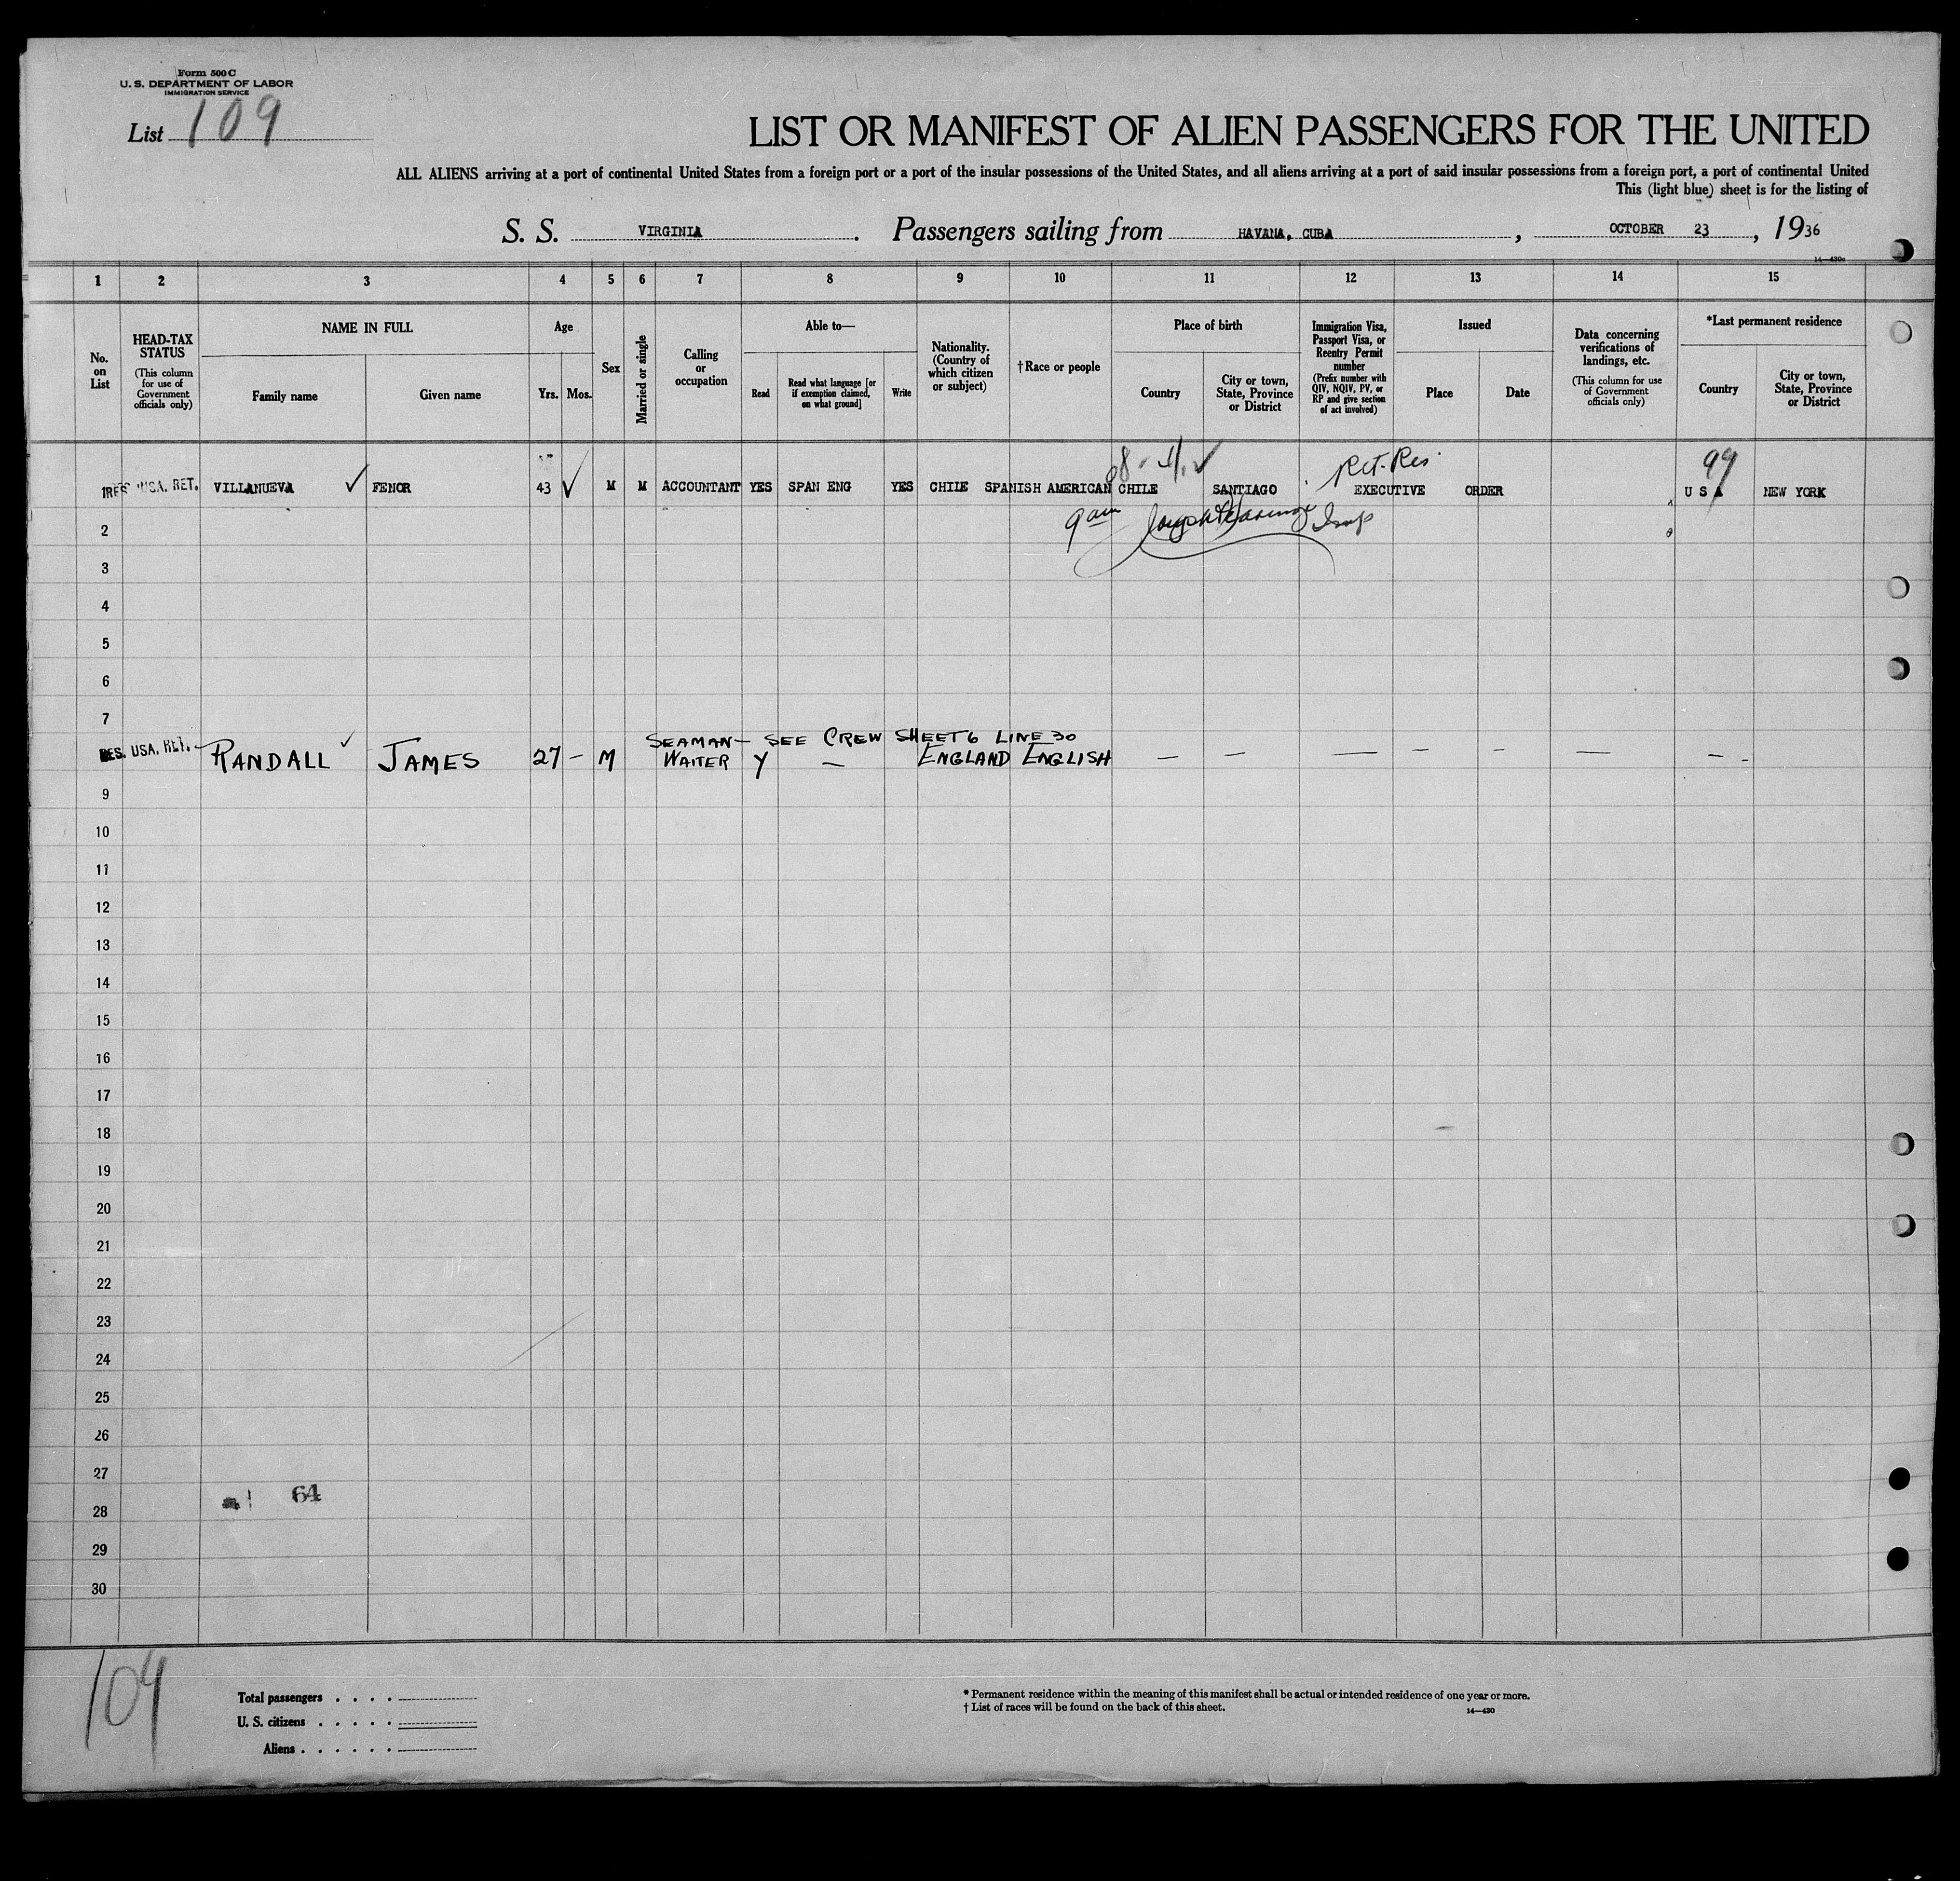 Form 500 C
U. S. DEPARTMENT OF LABOR
IMMIGRATION SERVICE
List 109
LIST OR MANIFEST OF ALIEN PASSENGERS FOR THE UNITED
ALL ALIENS arriving at a port of continental United States from a foreign port or a port of the insular possessions of the United States, and all aliens arriving at a port of said insular possessions from a foreign port, a port of continental United
This (light blue) sheet is for the listing of
S. S. VIRGINIA. Passengers sailing from HAVANA, CUBA, OCTOBER 23, 1936
14—430a
1 2 3 4 5 6 7 8 9 10 11 12 13 14 15
No. on List
HEAD-TAX STATUS
(This column for use of Government officials only)
NAME IN FULL
Family name
Given name
Age
Yrs.
Mos.
Sex
Married or single
Calling or occupation
Able to—
Read
Read what language [or if exemption claimed, on what ground]
Write
Nationality. (Country of which citizen or subject)
†Race or people
Place of birth
Country
City or town, State, Province or District
Immigration Visa, Passport Visa, or Reentry Permit number
(Prefix number with QIV, NQIV, PV, or RP and give section of act involved)
Issued
Place
Date
Data concerning verifications of landings, etc.
(This column for use of Government officials only)
*Last permanent residence
Country
City or town, State, Province or District
Ret-Res
99
1 RES USA. RET. VILLANUEVA ✓ FENOR 43 ✓ M M ACCOUNTANT YES SPAN ENG YES CHILE SPANISH AMERICAN CHILE SANTIAGO EXECUTIVE ORDER U S A NEW YORK
9 am Insp
2
3
4
5
6
7
SEAMAN— SEE CREW SHEET 6 LINE 30
RES. USA. RET. RANDALL ✓ JAMES 27 — M WAITER Y — ENGLAND ENGLISH — — — — — — — -
9
10
11
12
13
14
15
16
17
18
19
20
21
22
23
24
25
26
27
64
28
29
30
109
Total passengers . . . .
U. S. citizens . . . . .
Aliens . . . . . .
* Permanent residence within the meaning of this manifest shall be actual or intended residence of one year or more.
† List of races will be found on the back of this sheet.
14—430